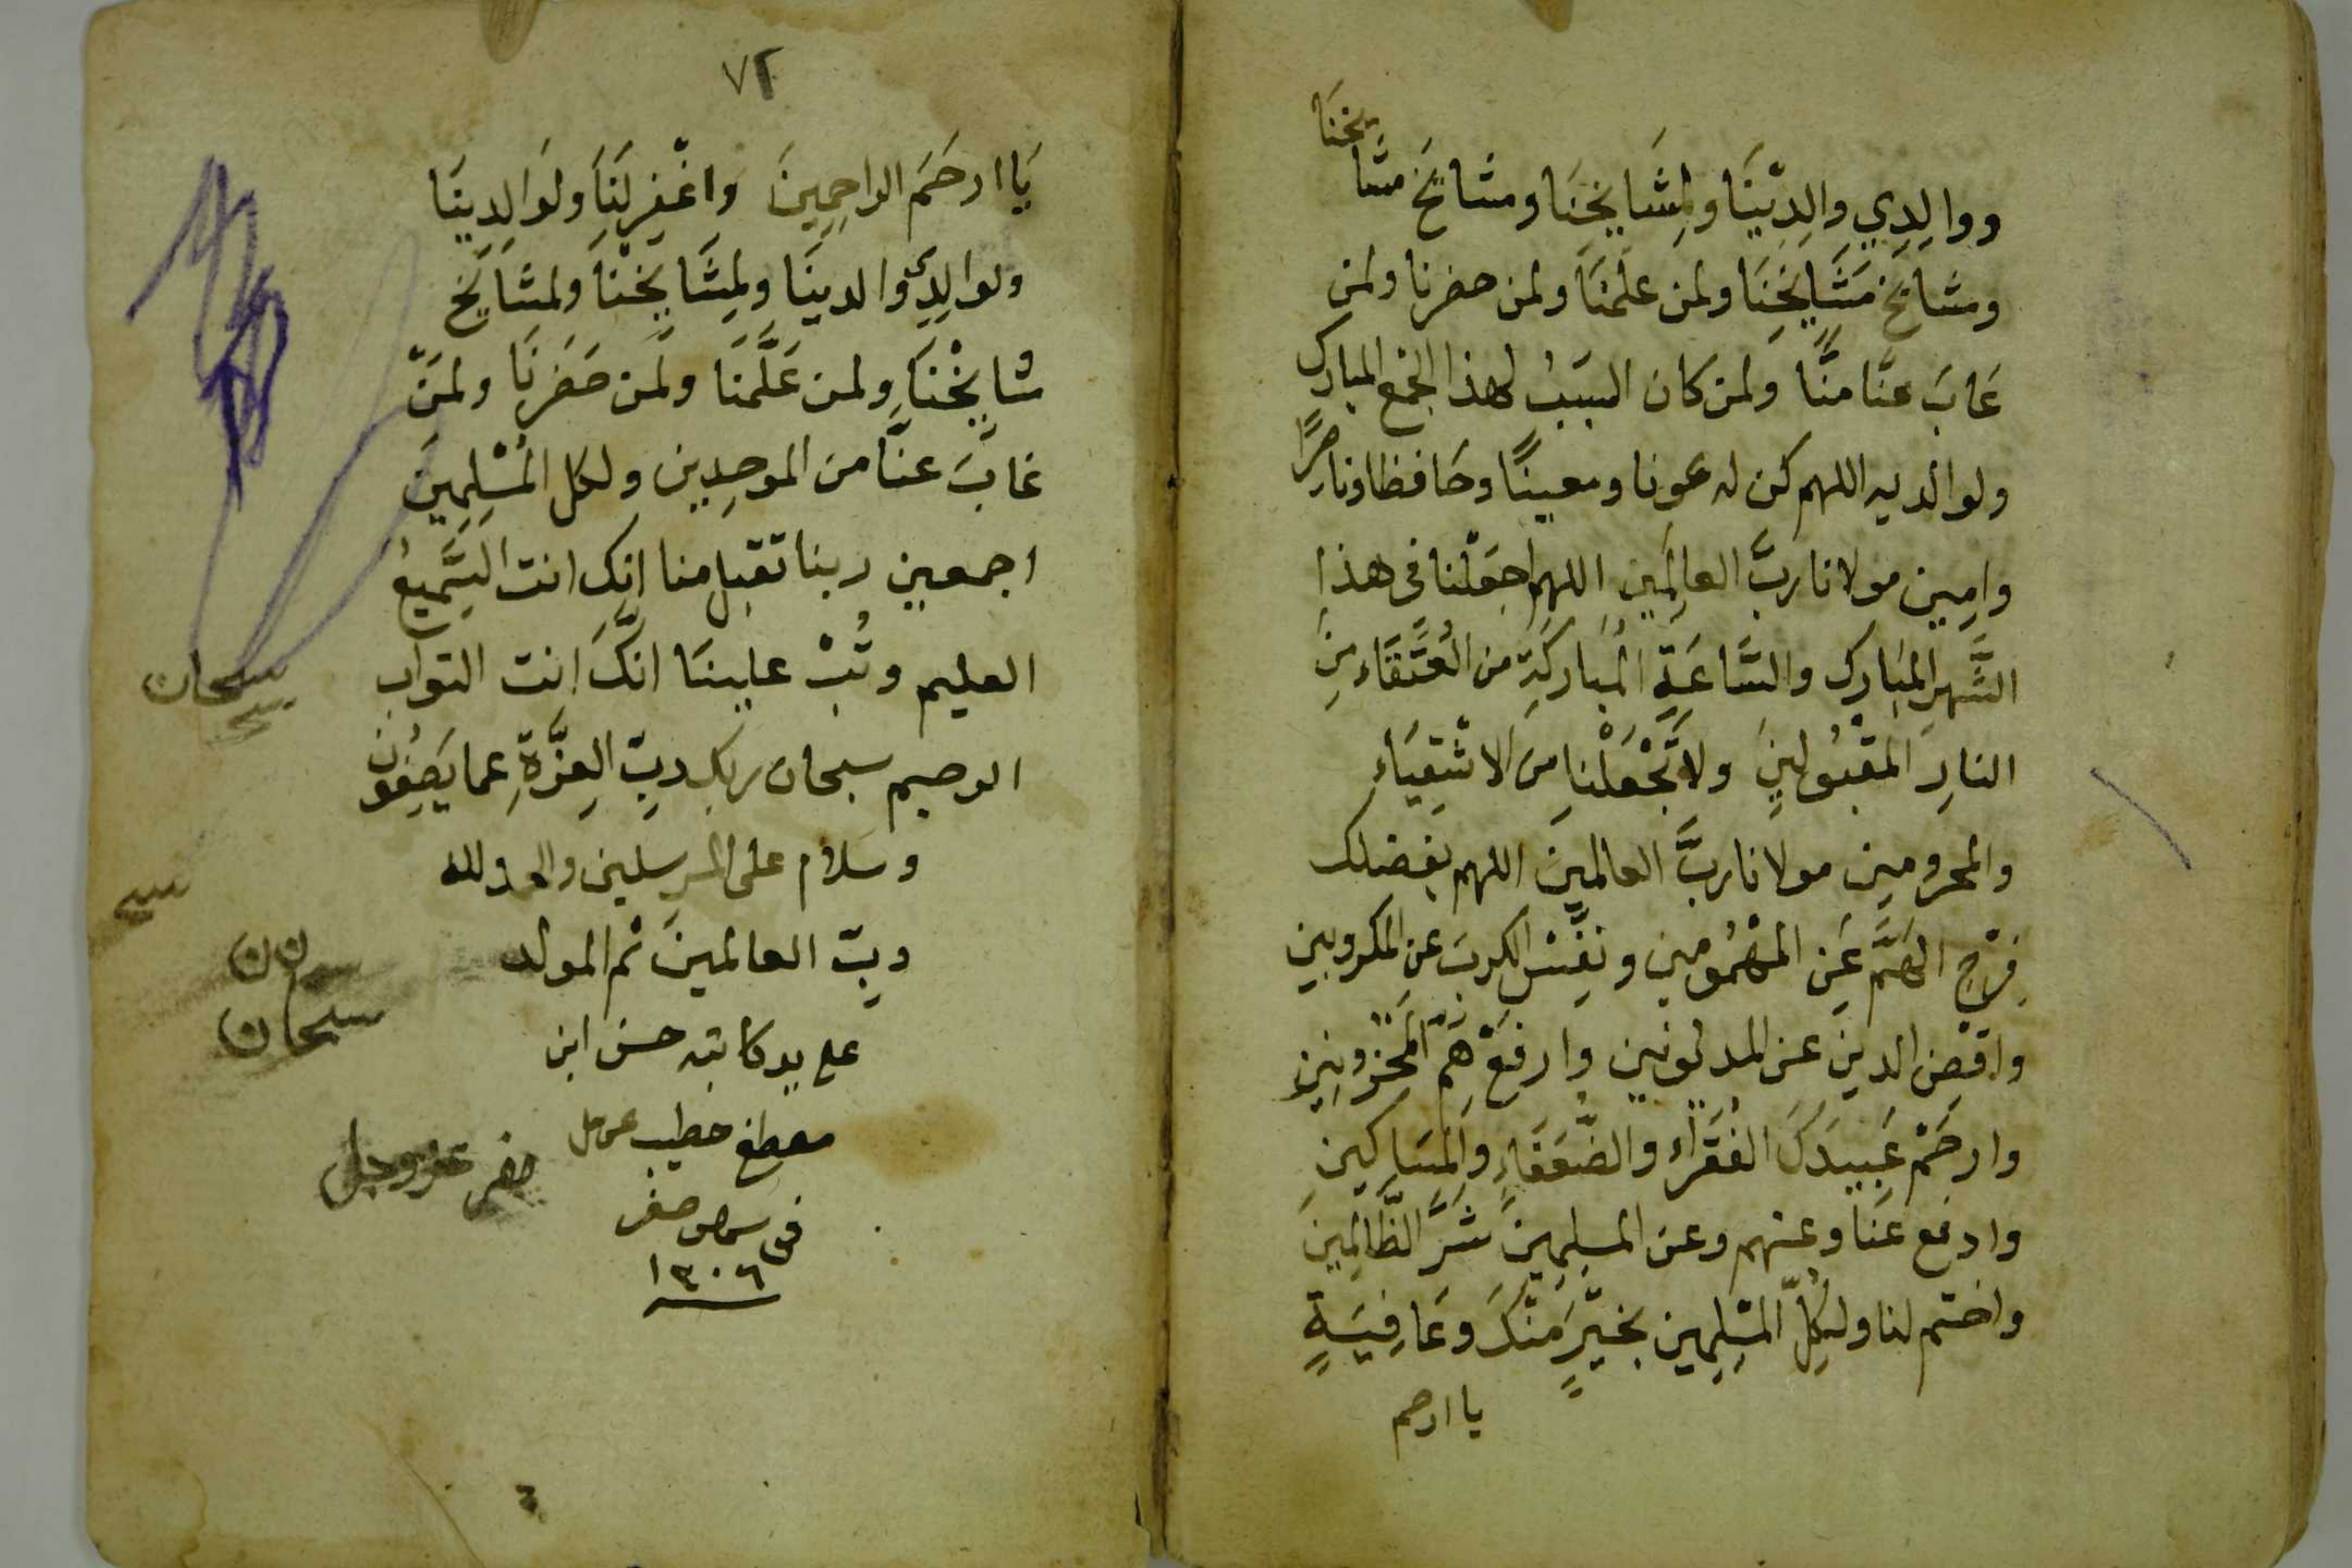 ووالِدِي والِدِيْنَا ولِمَشَايِخِنَا ومشايخ مشَايخنَا
ومشايخ مَشَايِخِنَا ولمن علمنَا ولمن حضرنا ولمن
غابَ عنَّا منَّا ولمن كان السبَبُ لهذا الجمع المبارك
ولوالديه اللهم كن له عونا ومعينًا وحَافظا وناصرًا
وامِين مولانا ربَّ العالمَينِ اللهم اجعَلْنا فى هذا
الشَّهرِ المبَارك والسَّاعَةِ المبَاركَةِ من العُتَقَاءِ مِنَ
النارِ المَقْبُولينِ ولَا تَجْعَلْنا من الاشْقِيَاءِ
والمحرومين مولانا ربَّ العالمينَ اللهم بفضلك
فرّج الهَمَّ عَنِ المهْمُومِين ونفِّسْ الكربَ عن المكروبين
واقْضِ الدين عن المديونين وارفَعْ هَمّ المَحْزونِين
وارحَمْ عَبِيدَكَ الفُقَرَاء والضُّعَفَاءِ والمَسَاكِينِ
وادفع عَنَا وعنهم وعن المسلِمِينَ شَرَّ الظَّالِمِينَ
واختم لنا ولِكُلِّ المسْلِمِين بخَيْرٍ مَنْكَ وعَافِيَةٍ
يا ارحم
٧٢
يَا ارحَمَ الراحِمِينَ واغْفِر لنَا ولوَالِدِينَا
ولوالِدِي والدينَا ولمِشَايِخْنَا ولمشَايخ
مشَايِخْنَا ولمن عَلَّمَنَا ولمن حَضَرنَا ولمَنْ
غابَ عنَّا من الموحِدِين ولكل المُسْلِمِينَ
اجمعين ربنا تقبل منا انِّك انت السَّمِيعُ
العليم وتُبْ علينَا انّكَ انت التواب
الرحيم سبحان ربك ربّ العِزَّةِ عما يَصِفُون
وسَلام على المرسلين والحمد لله
ربّ العالمينَ ثم المولد
على يد كاتبه حسن ابن
مصطفى خطيب
فى صفر
١٣٠٦
سبحان
سبحان
عز وجل